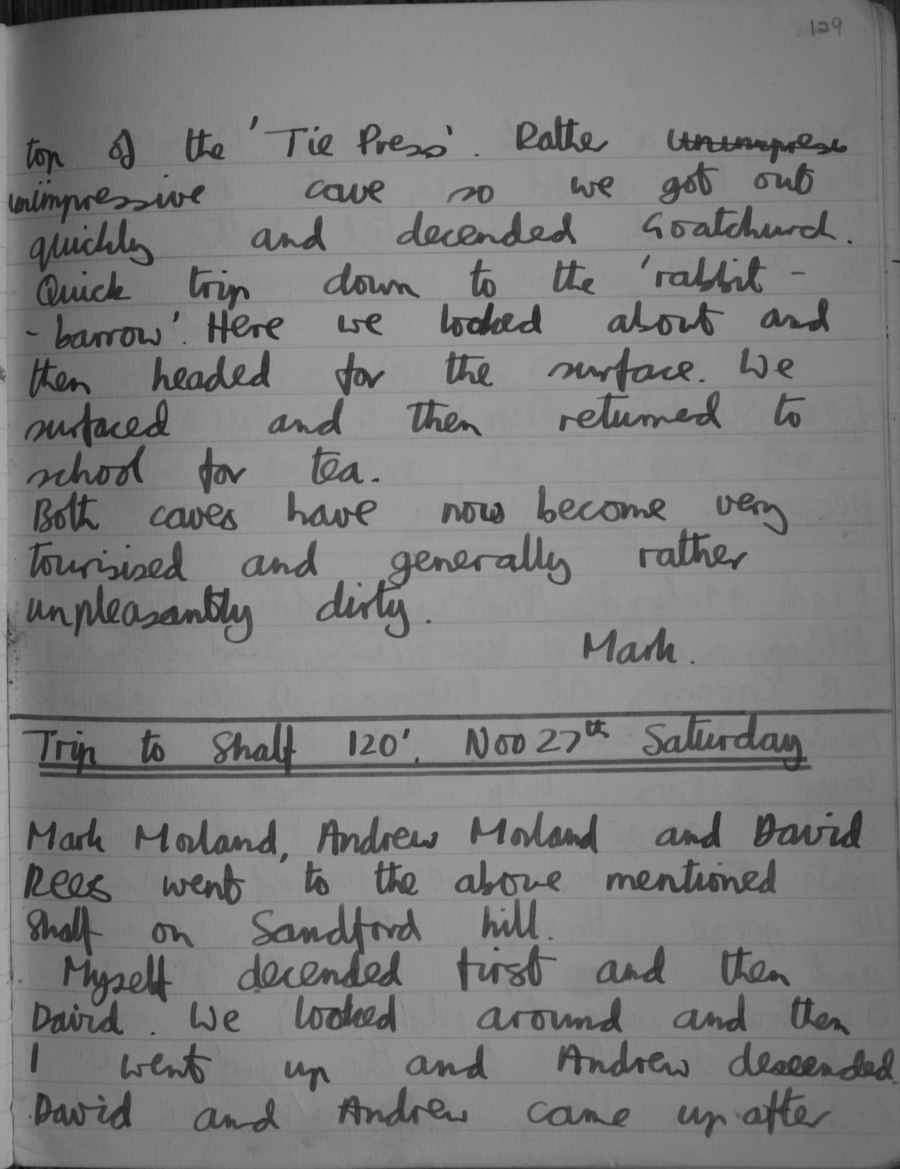 129
top of the 'Tie Press'. Rathe unimpress
unimpressive cave so we got out
quickly and decended Goatchurch.
Quick trip down to the 'rabbit -
- barrow'. Here we looked about and
then headed for the surface. We
surfaced and then returned to
school for tea.
Both caves have now become very
tourisised and generally rather
unpleasantly dirty.
Mark.
Trip to Shaft 120'. Nov 27th Saturday
Mark Morland, Andrew Morland and David
Rees went to the above mentioned
Shaft on Sandford hill.
Myself decended first and then
David. We looked around and then
I went up and Andrew descended.
David and Andrew came up after